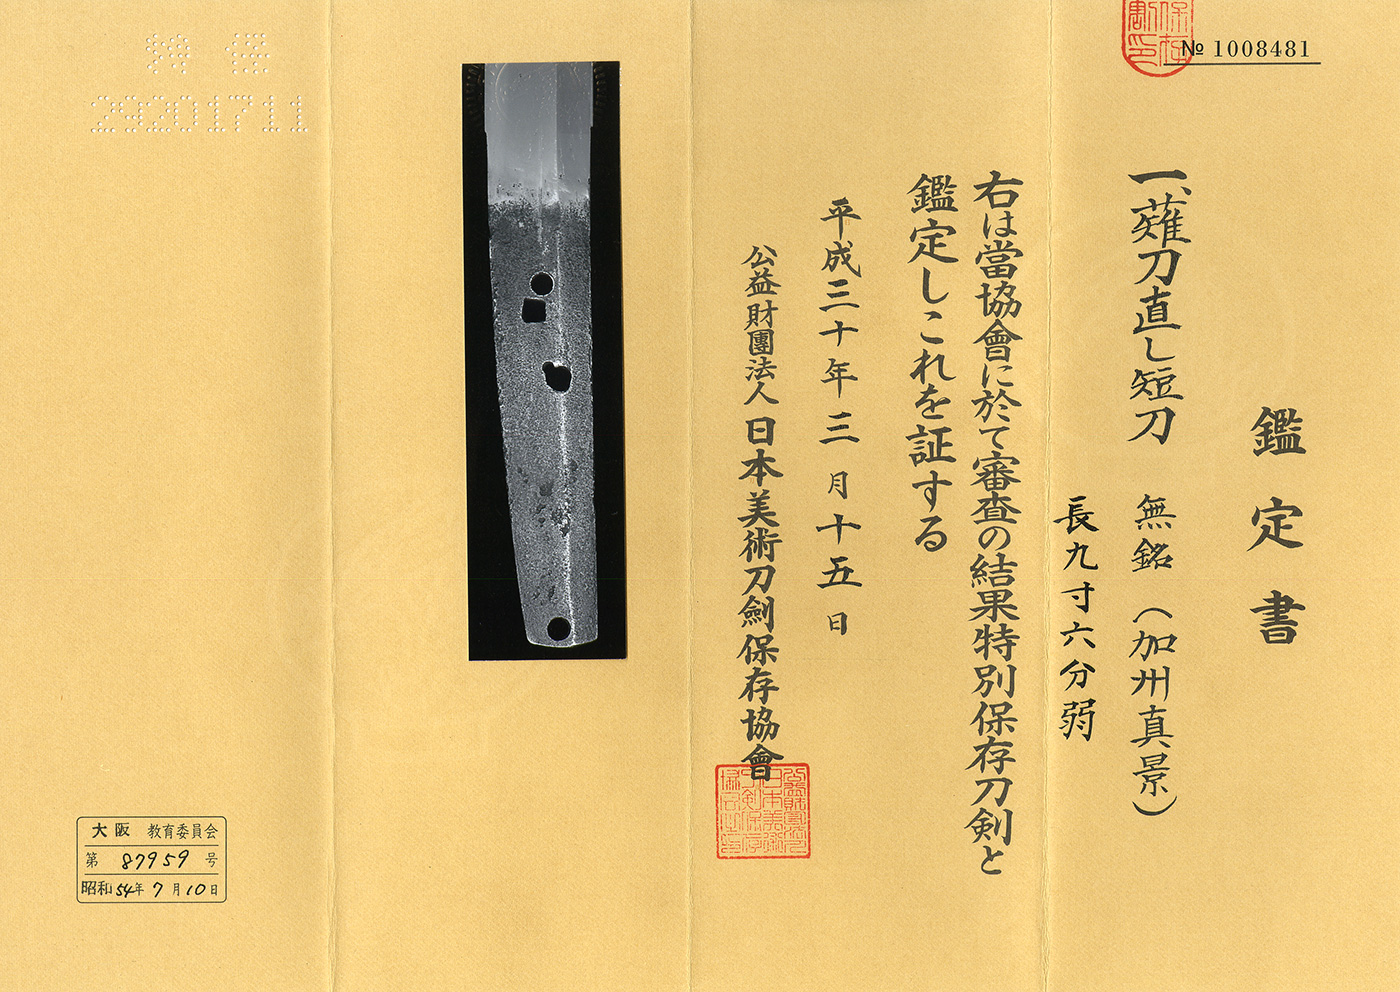 № 1008481
鑑定書
一、薙刀直し短刀　無銘（加州真景）
長九寸六分弱
右は當協會に於て審査の結果特別保存刀剣と
鑑定しこれを証する
平成三十年三月十五日
公益財團法人日本美術刀劍保存協會
29201711
大阪 教育委員会
第 87959 号
昭和54年7月10日